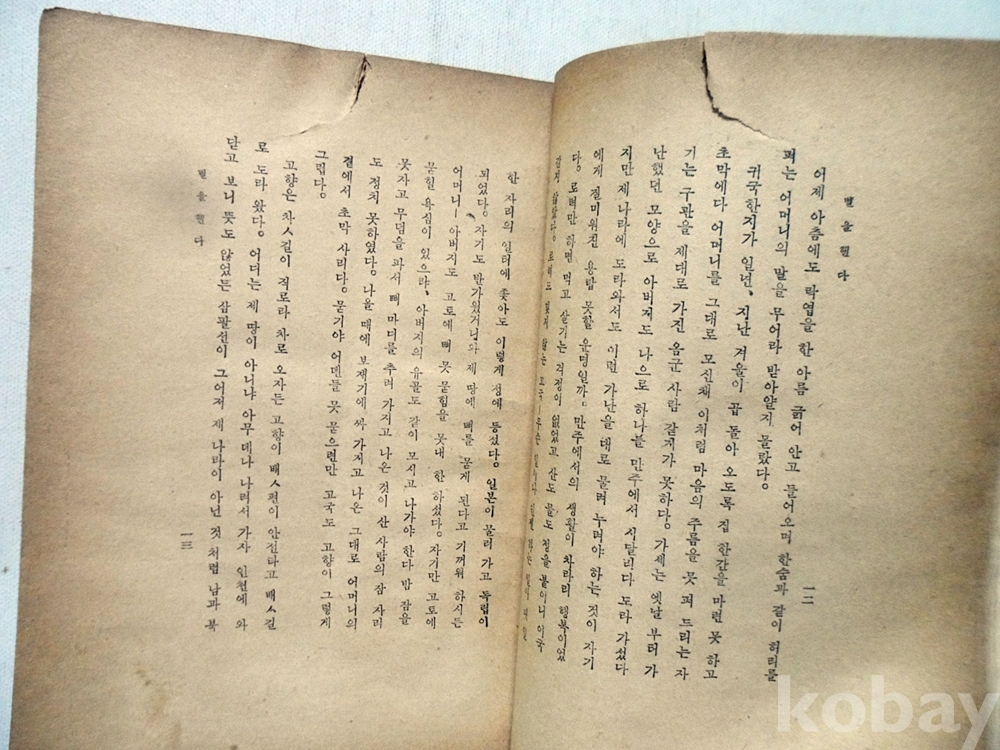 별을헨다
一二
어제 아츰에도 락엽을 한 아름 긁어 안고 들어오며 한숨과 같이 허리를
펴는 어머니의 말을 무어라 받아얄지 몰랐다。
귀국한지가 일년、 지난 겨울이 곱 돌아 오도록 집 한간을 마련 못 하고
초막에다 어머니를 그대로 모신채 이처럼 마음의 주름을 못 펴 드리는 자
기는 구관을 제대로 가진 옴군 사람 같재가 못하다。 가세는 옛날 부터 가
난했던 모양으로 아버져도 나으로 하나를 만주에서 시달리다 도라 가셨다
지만 제 나라에 도라와서도 이런 가난을 대로 물려 누며야 하는 것이 자기
에게 질미워진 용납 못할 운명일까。 만주에서의 생활이 차라리 행복이었
다。 로력만 하면 먹고 살기는 걱정이 없었고 산도 물도 정을 붙이니 이국
같지 않았다。
한 자리의 일터에 좇아도 이렇게 성에 등셨다。 일본이 물러 가고 독립이
되었다。 자기도 반가웠거니와 제 땅에 뼈를 묻게 된다고 기꺼워 하시든
어머니ㅣ 아버지도 고토에 뼈 못 묻힘을 못내 한 하셨다。 자기만 고토에
묻힐 욕심이 있으랴、 아버지의 유골도 같이 모시고 나가야 한다 밤 잠을
못자고 무덤을 파서 뼈 마디를 추려 가지고 나온 것이 산 사람의 잠 자리
도 정치 못하였다。 나올 때에 보재기에 싸 가지고 나온 그대로 어머니의
곁에서 초막 사리다。 묻기야 어덴들 못 묻으련만 고국도 고향이 그렇게
그립다。
고향은 차ㅅ길이 직로라 차로 오자든 고향이 배ㅅ편이 안전타고 배ㅅ길
로 도라 왔다。 어디는 제 땅이 아니냐 아무데나 나려서 가자 인천에 와
닫고 보니 뜻도 않었든 삼팔선이 그어저 제 나라이 아닌 것 처럼 남과 북
별을헨다
一三
kobay